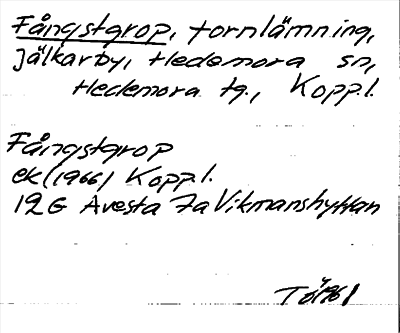 Fångstgrop, fornlämning,
Jälkarby, Hedemora sn,
Hedemora tg., Kopp.l.
Fångstgrop
ek (1966) Kopp.l.
12G Avesta 7a Vikmanshyttan